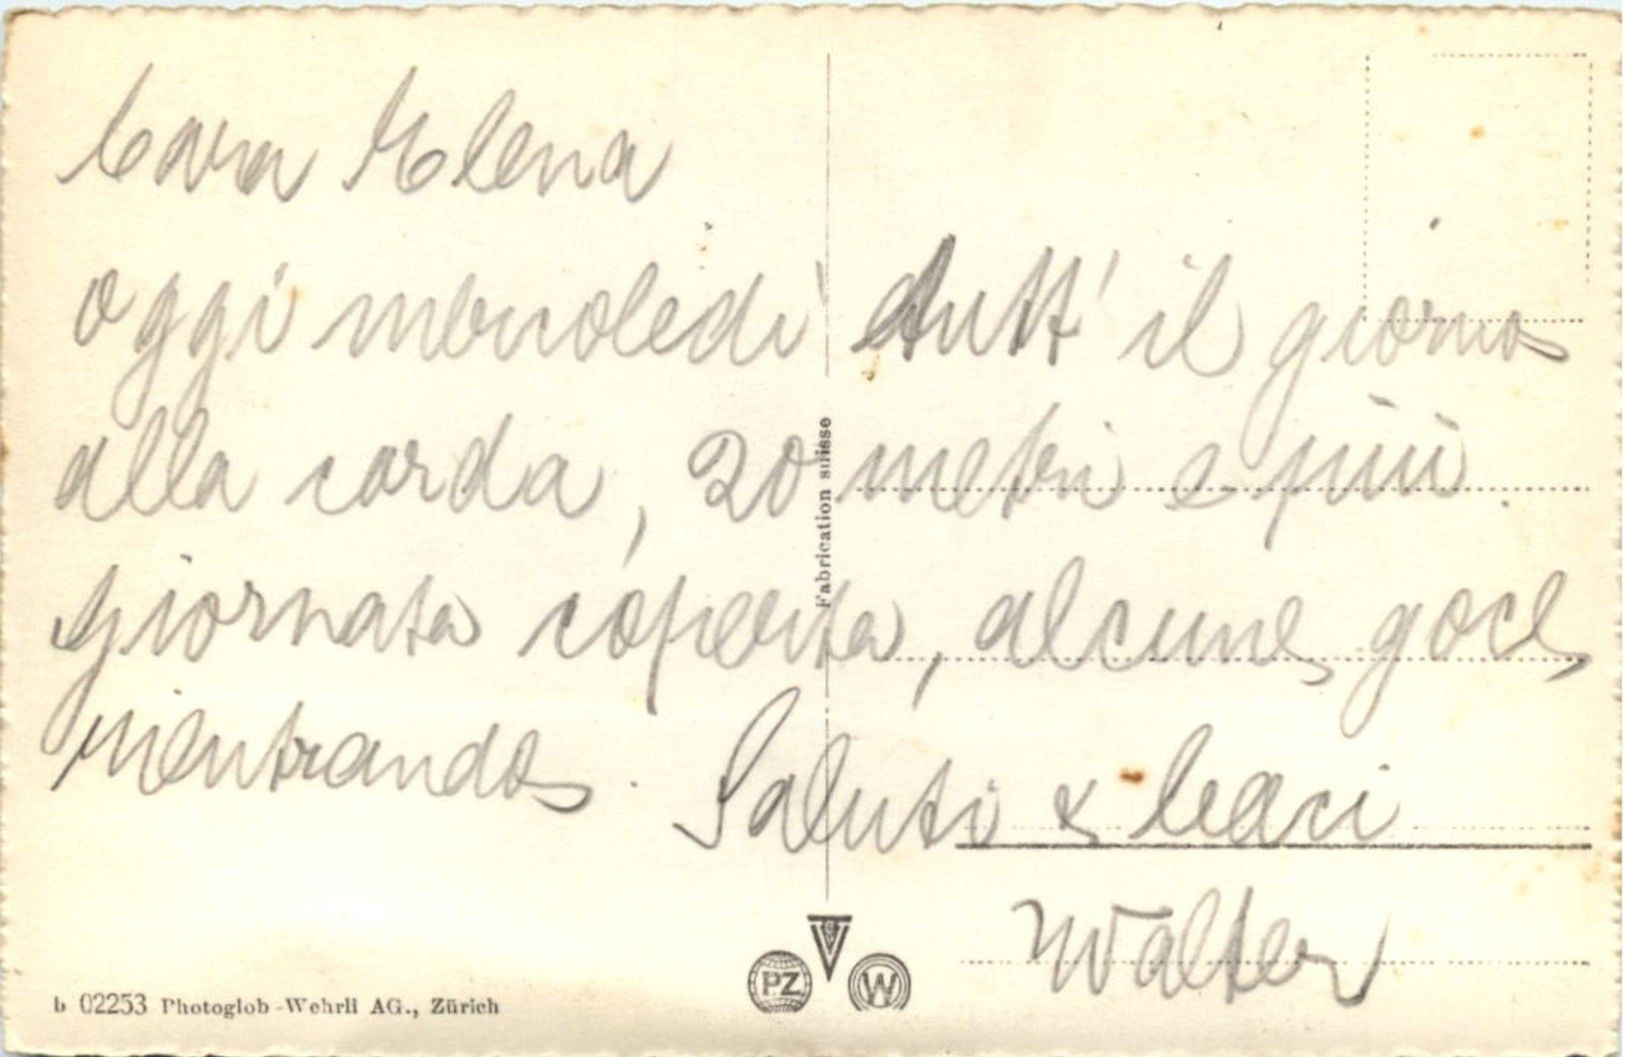 Cara Elena
oggi mercoledi tutt' il giorno
alla corda, 20 metri e più.
giornata coperta, alcune goce
rientrando. Saluti & baci
Walter
Fabrication suisse
PZ
W
b 02253 Photoglob-Wehrli AG., Zürich